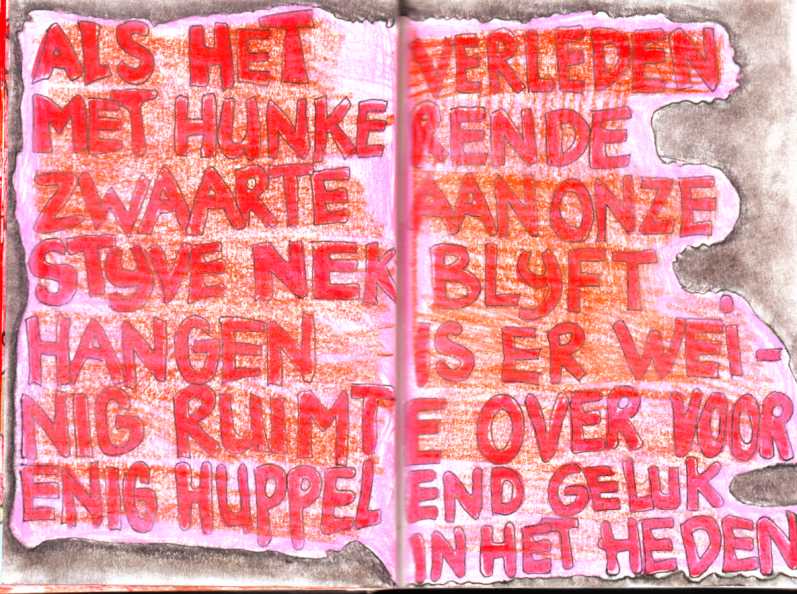 ALS HET VERLEDEN
MET HUNKERENDE
ZWAARTE AAN ONZE
STYVE NEK BLYFT
HANGEN IS ER WEI-
NIG RUIMTE OVER VOOR
ENIG HUPPELEND GELUK
IN HET HEDEN